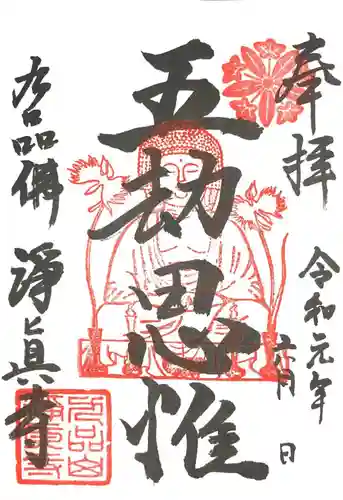 奉拝
令和元年
六月 日
五劫思惟
九品佛 淨眞寺